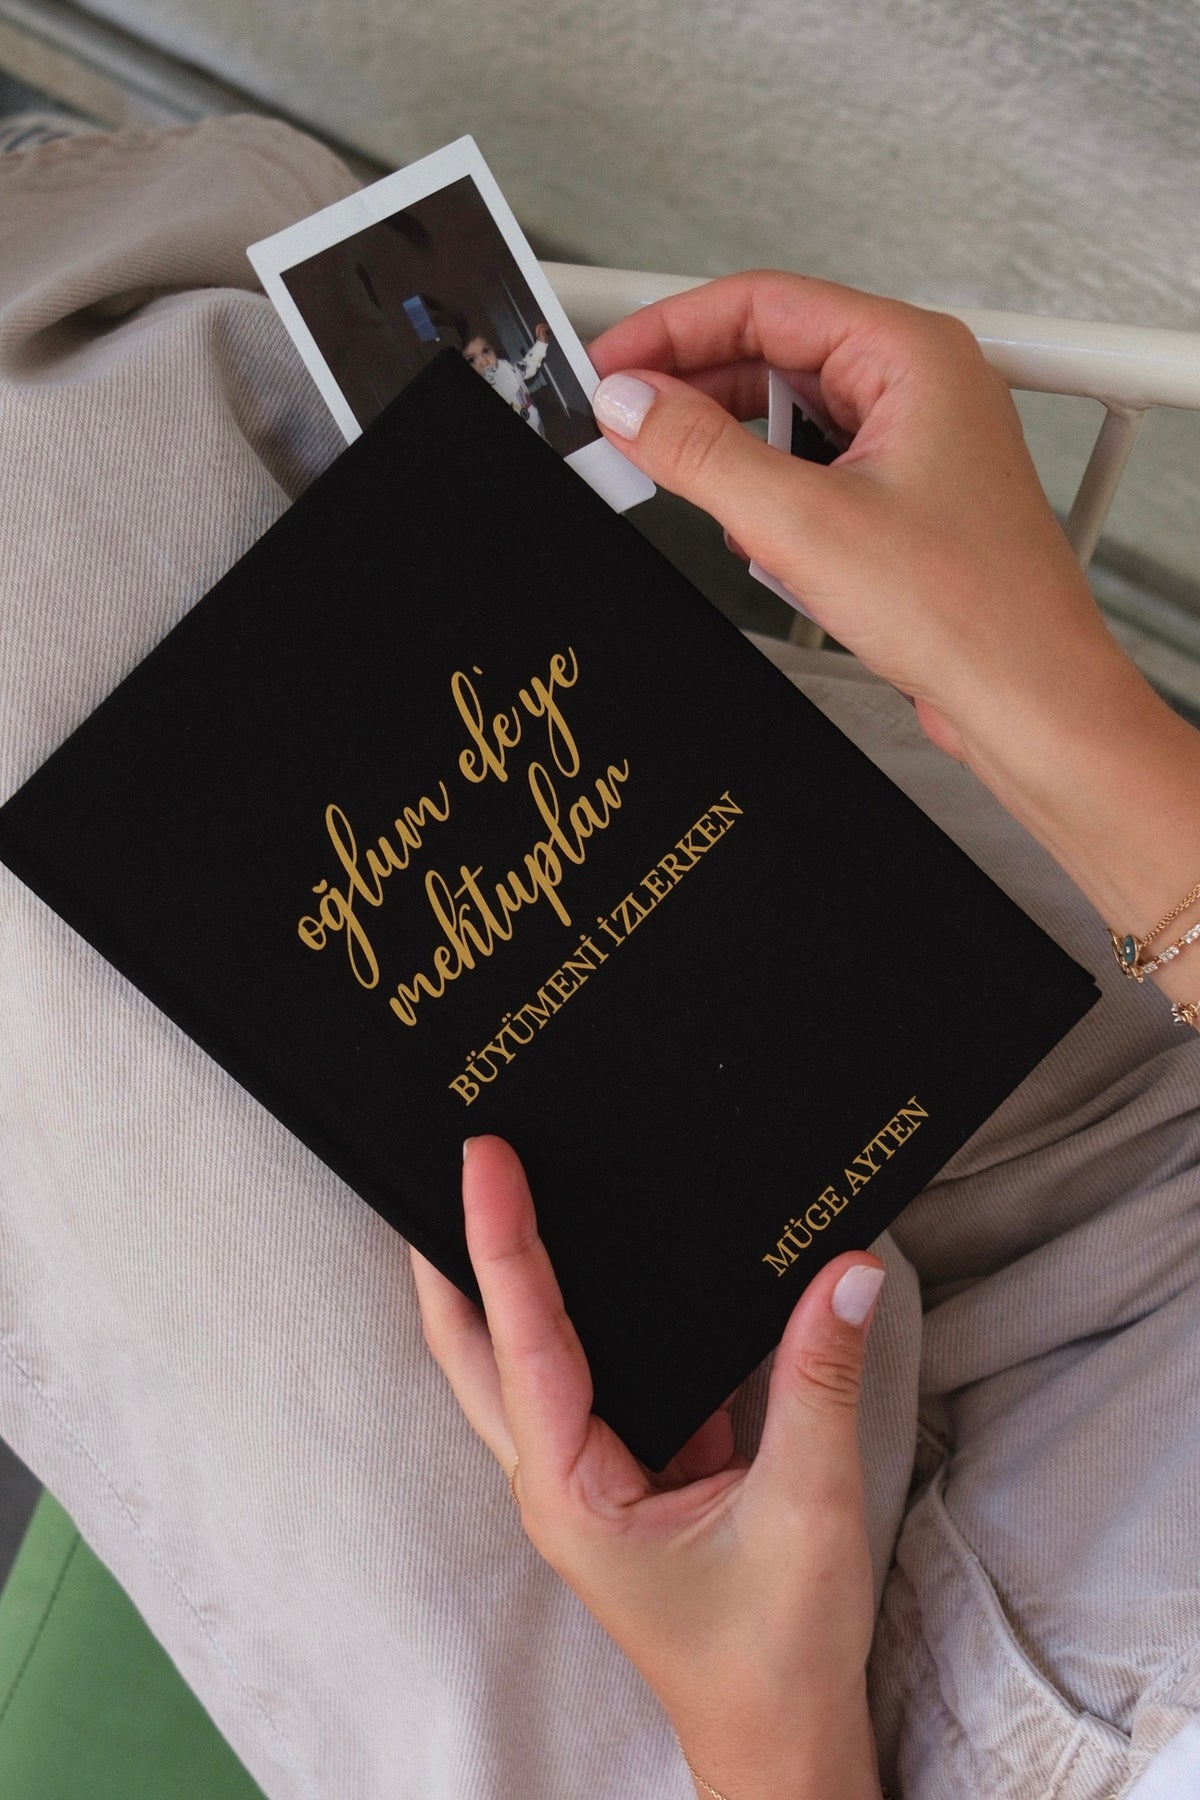 oğlum efe'ye
mektupları
BÜYÜMENİ İZLERKEN
MÜGE AYTEN